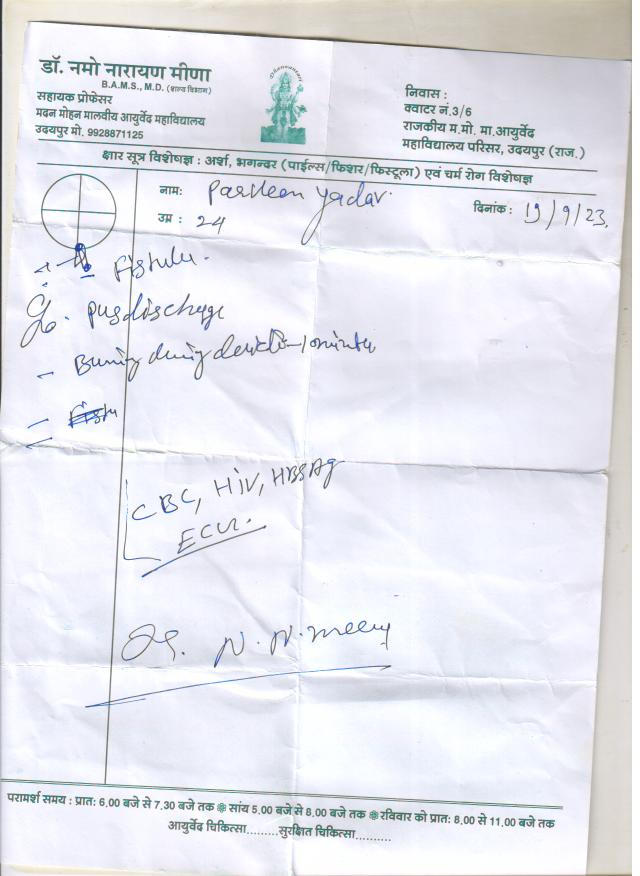 डॉ. नमो नारायण मीणा
B.A.M.S., M.D. (शल्य विज्ञान)
सहायक प्रोफेसर
मदन मोहन मालवीय आयुर्वेद महाविद्यालय
उदयपुर मो. 9928871125
Dhanvantari
निवास :
क्वाटर नं.3/6
राजकीय म.मो. मा.आयुर्वेद
महाविद्यालय परिसर, उदयपुर (राज.)
क्षार सूत्र विशेषज्ञ : अर्श, भगन्दर (पाईल्स/फिशर/फिस्टूला) एवं चर्म रोग विशेषज्ञ
नामः Parveen Yadav.
दिनांक : 19/9/23.
उम्र : 24
Fistula.
pus discharge
Burning during
CBC, HIV, HBSAg
Dr. N. N. meena
परामर्श समय : प्रातः 6.00 बजे से 7.30 बजे तक ❋ सांय 5.00 बजे से 8.00 बजे तक ❋ रविवार को प्रातः 8.00 से 11.00 बजे तक
आयुर्वेद चिकित्सा.........सुरक्षित चिकित्सा..........